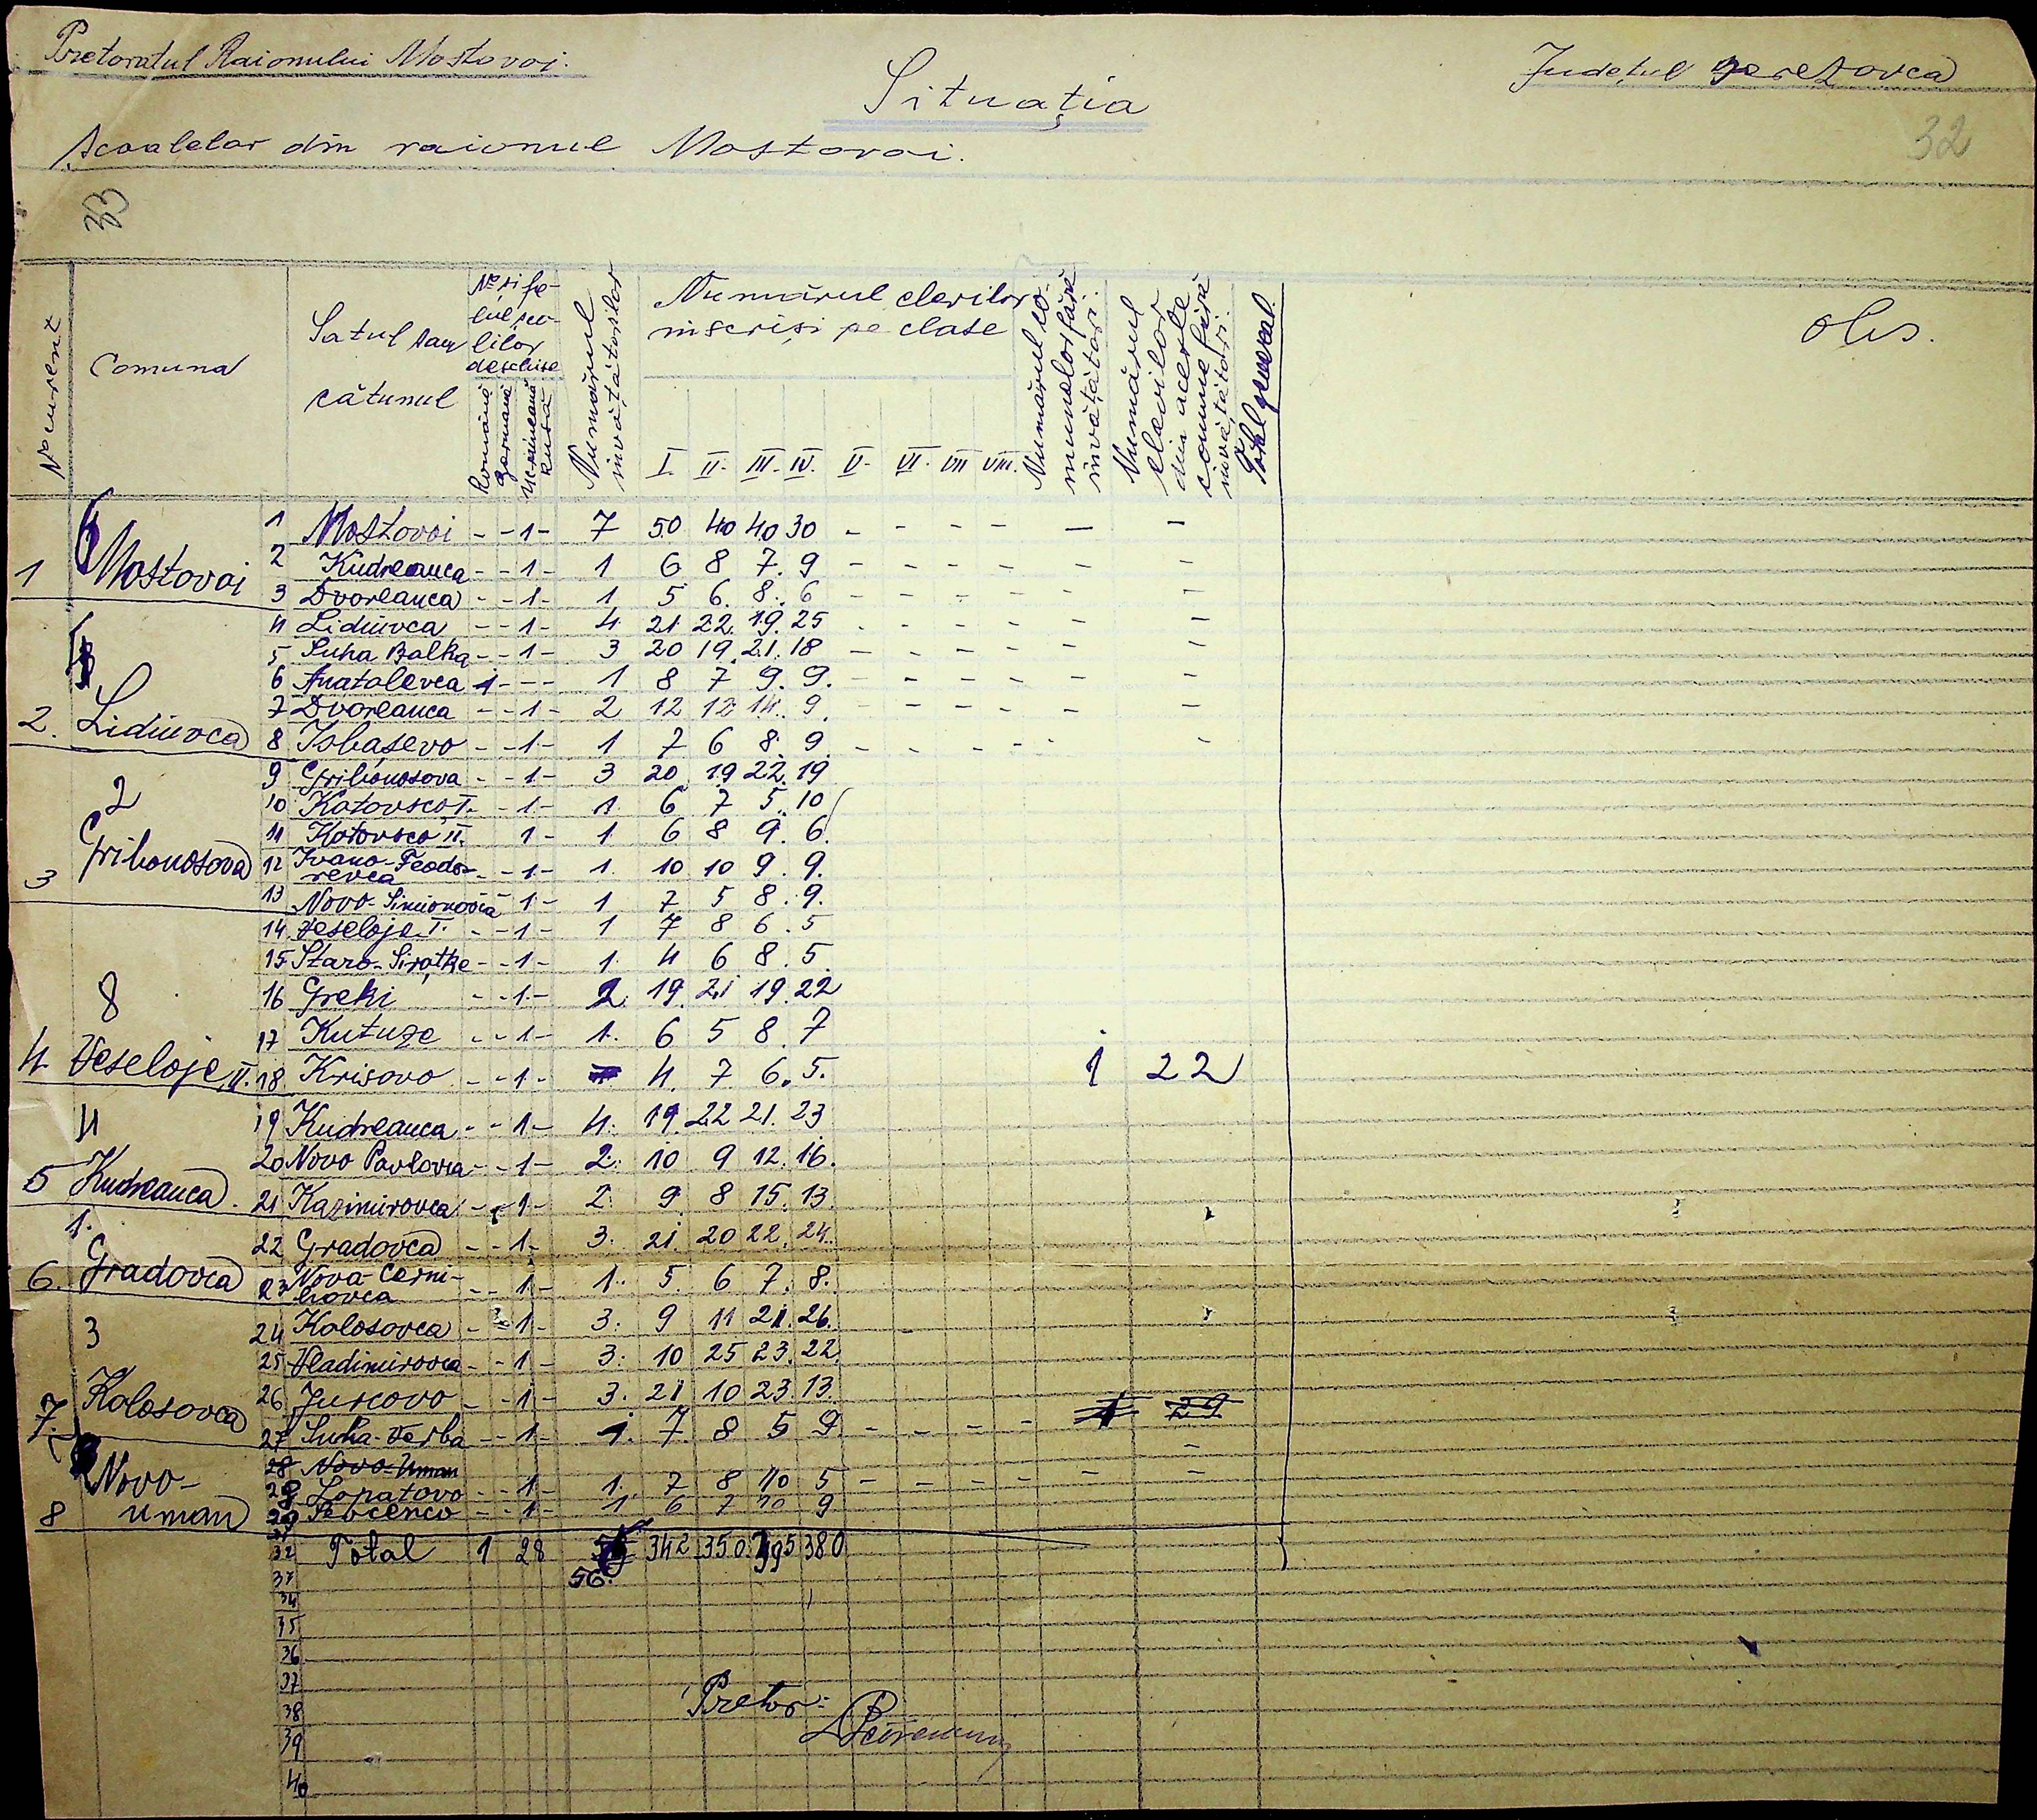 Pretoratul Raionului Mostovoi.
Județul Berezovca
Situația
32
școalelor din raionul Mostovoi.
33
No curent
Comuna
Satul sau cătunul
No și felul școlilor deschise
Română
germană
Ucraineană Rusă
Numărul invățătorilor
Numărul elevilor inscriși pe clase
I. II. III. IV. V. VI. VII VIII.
Numărul comunelor fără invățători.
Numărul elevilor din aceste comune fără invățători.
Total general
Obs.
1 Mostovoi - - 1 - 7 50 40 40 30 - - - - - -
2 Kudreauca - - 1 - 1 6 8 7. 9 - - - - - -
1 Mostovoi 3 Dvoreanca - - 1 - 1 5 6. 8. 6 - - - - - -
4 Lidiuvca - - 1 - 4 21 22. 19. 25 - - - - - -
5 Suha Balka - - 1 - 3 20 19. 21. 18 - - - - - -
6 Anatolevca 1 - - - 1 8 7 9. 9. - - - - - -
7 Dvoreanca - - 1 - 2 12 12 14. 9. - - - - - -
2. Lidiuvca 8 Isbașevo - - 1 - 1 7 6 8. 9. - - - - - -
9 Gribonosova - - 1 - 3 20 19 22. 19
2
10 Katovsco I. - 1 - 1. 6 7 5. 10
11 Kotovsco II. 1 - 1 6 8 9. 6.
3 Gribonosova 12 Ivano-Feodorevca - - 1 - 1. 10 10 9. 9.
13 Novo-Simionovca 1 - 1 7 5 8. 9.
14 Veseloje I. - - 1 - 1 7 8 6. 5
15 Staro-Sirotke - - 1 - 1. 4 6 8. 5
8
16 Greki - - 1 - 2. 19. 21 19. 22
17 Kutuze - - 1 - 1. 6 5 8. 7
4 Veseloje II. 18 Krisovo - - 1 - 4. 7 6. 5. 1 22
4
19 Kudreanca - - 1 - 4. 19. 22 21. 23
20 Novo Pavlovca - - 1 - 2. 10 9 12. 16.
5 Kudreanca. 21 Kazimirovca - - 1 - 2. 9. 8 15. 13.
1.
22 Gradovca - - 1 - 3. 21. 20 22. 24.
6. Gradovca 23 Nova-Cernihovca - - 1 - 1. 5. 6 7. 8.
3
24 Kolosovca - - 1 - 3. 9 11 21. 26.
25 Vladimirovca - - 1 - 3. 10 25 23. 22.
26 Juscovo - - 1 - 3. 21 10 23. 13. 1 29
7. Kolosovca 27 Suha-Verba - - 1 - 1. 7. 8 5 9 - - - - -
28 Novo-Uman -
28 Lopatovo - - 1 - 1. 7 8 10 5 - - - - - -
8 Novo-uman 29 Sevcenco - - 1 - 1 6 7 10 9
32 Total 1 28 342 350. 395 380
56.
34
35
36
37
38
39
40
Pretor: